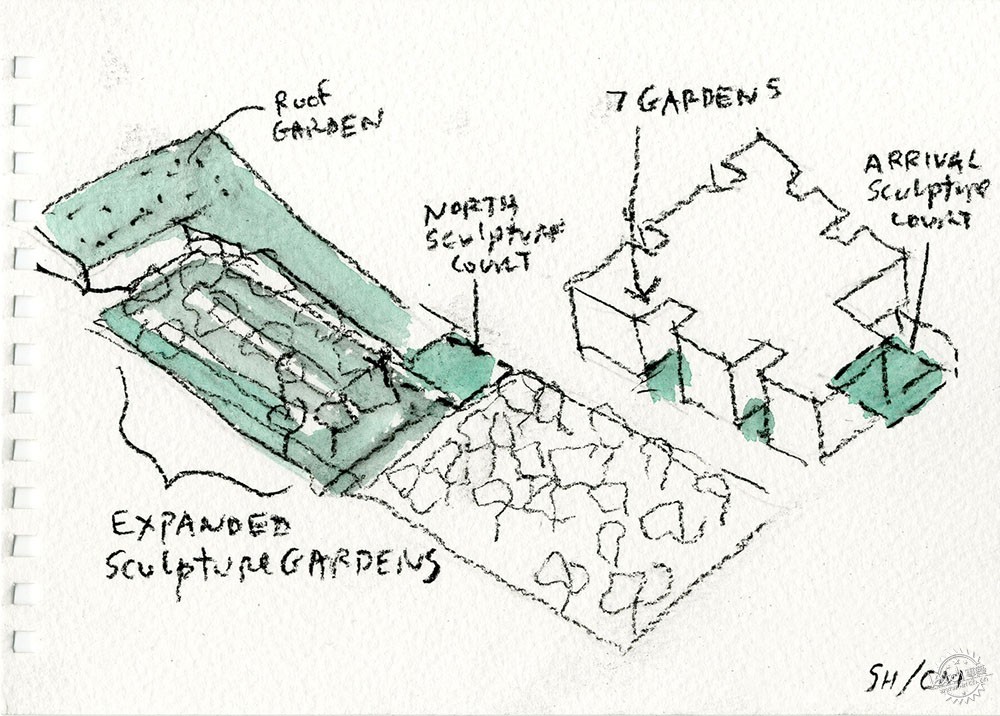 Roof
GARDEN
7 GARDENS
ARRIVAL
Sculpture
COURT
NORTH
Sculpture
COURT
EXPANDED
Sculpture GARDENS
SH/